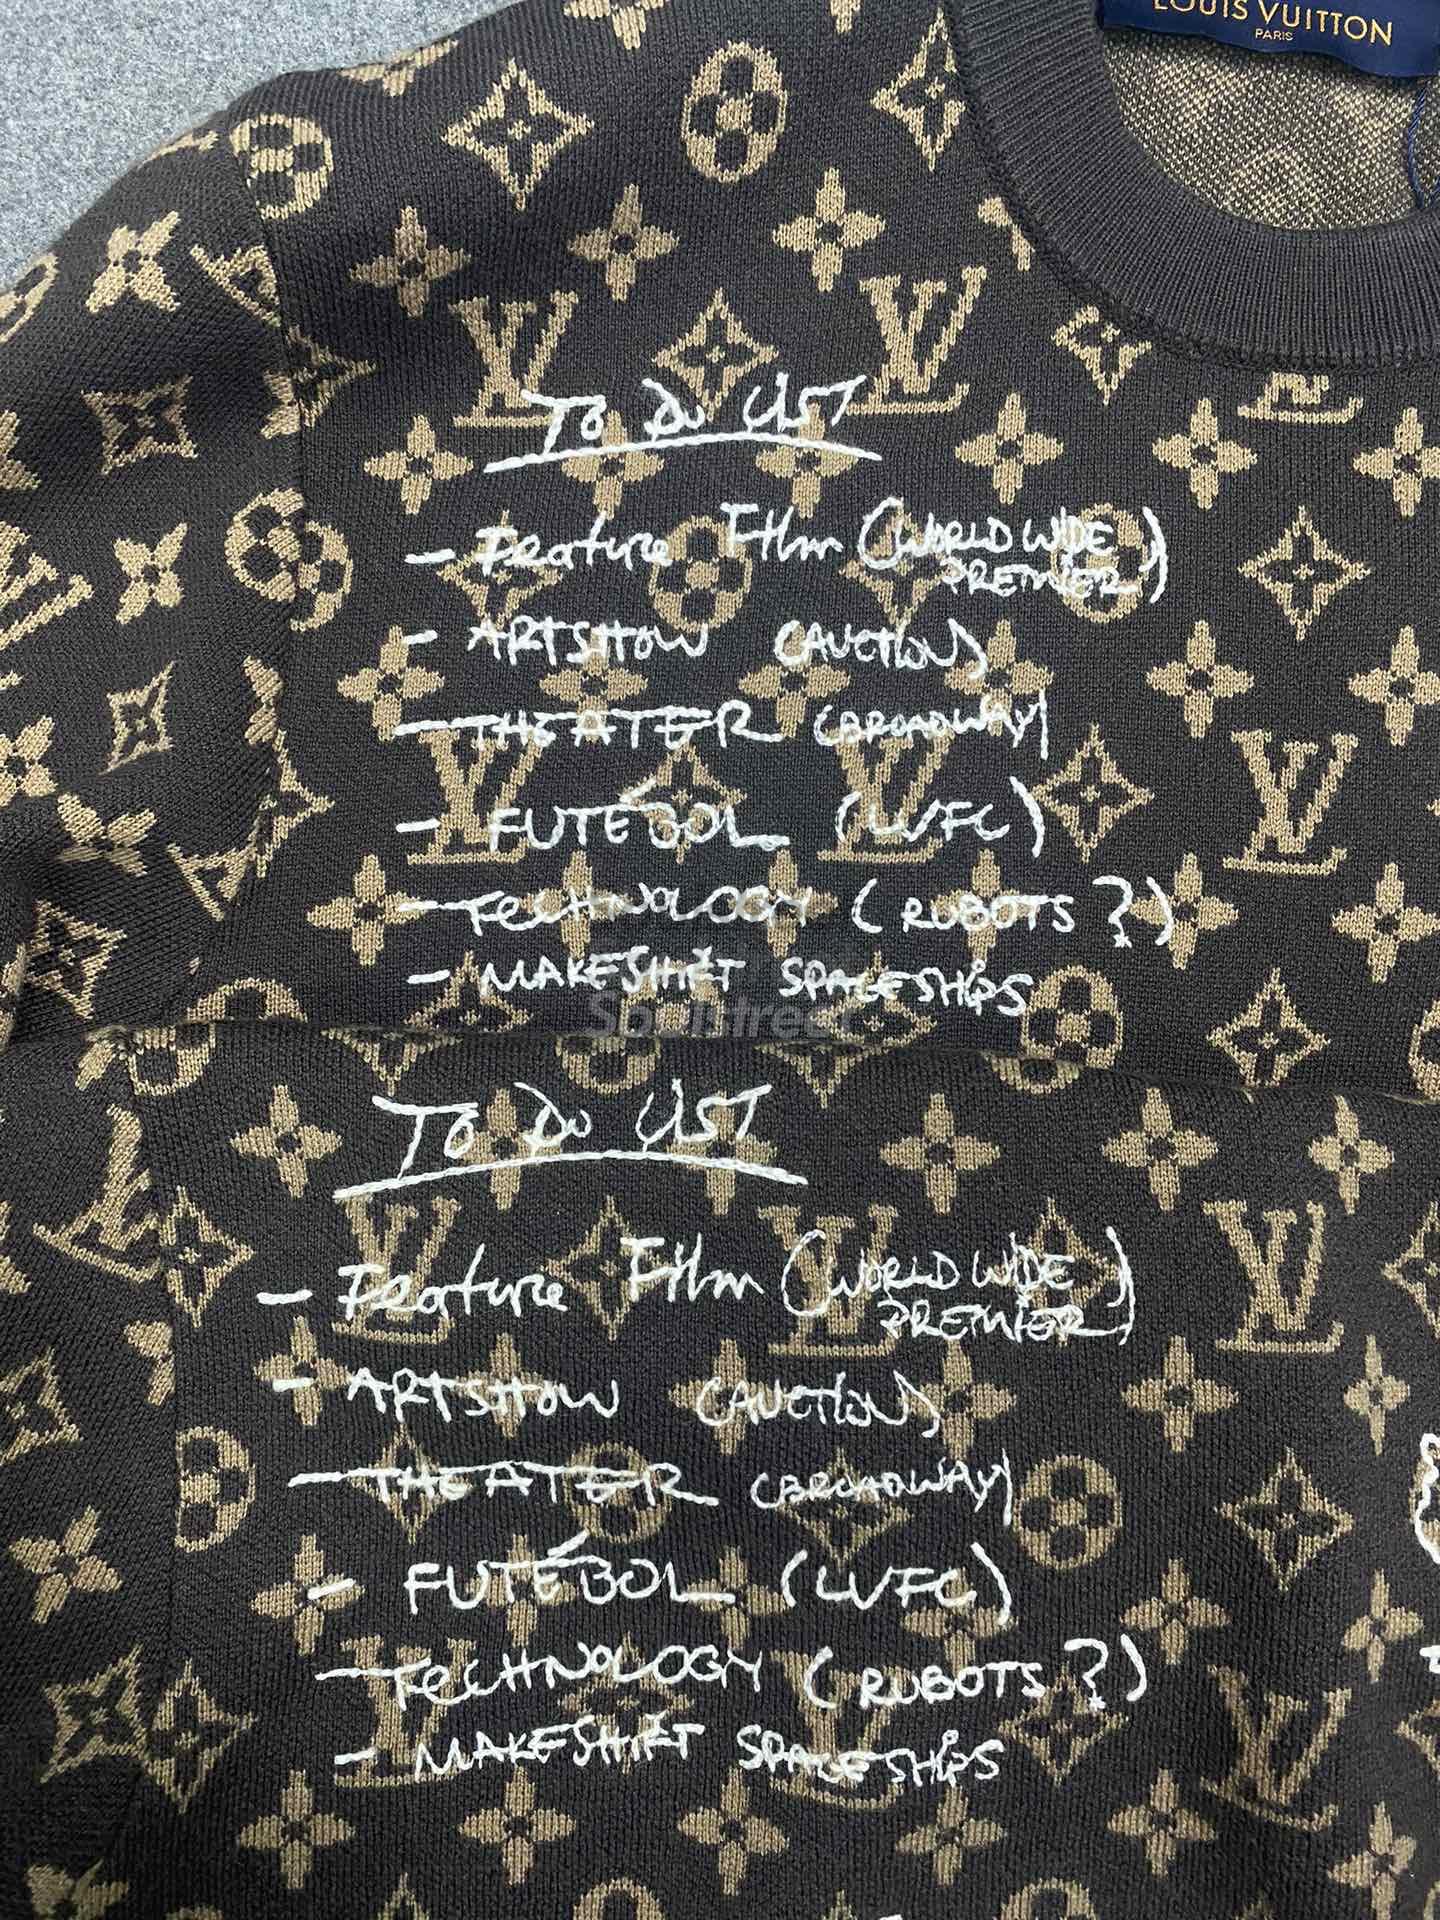 LOUIS VUITTON
PARIS
TO DO LIST
- Feature Film (WORLD WIDE
PREMIER)
- ARTSHOW (AUCTION)
- THEATER (BROADWAY)
- FUTÉBOL (LVFC)
- TECHNOLOGY (ROBOTS?)
- MAKESHIFT SPACESHIPS
TO DO LIST
- Feature Film (WORLD WIDE
PREMIER)
- ARTSHOW (AUCTION)
- THEATER (BROADWAY)
- FUTÉBOL (LVFC)
- TECHNOLOGY (ROBOTS?)
- MAKESHIFT SPACESHIPS